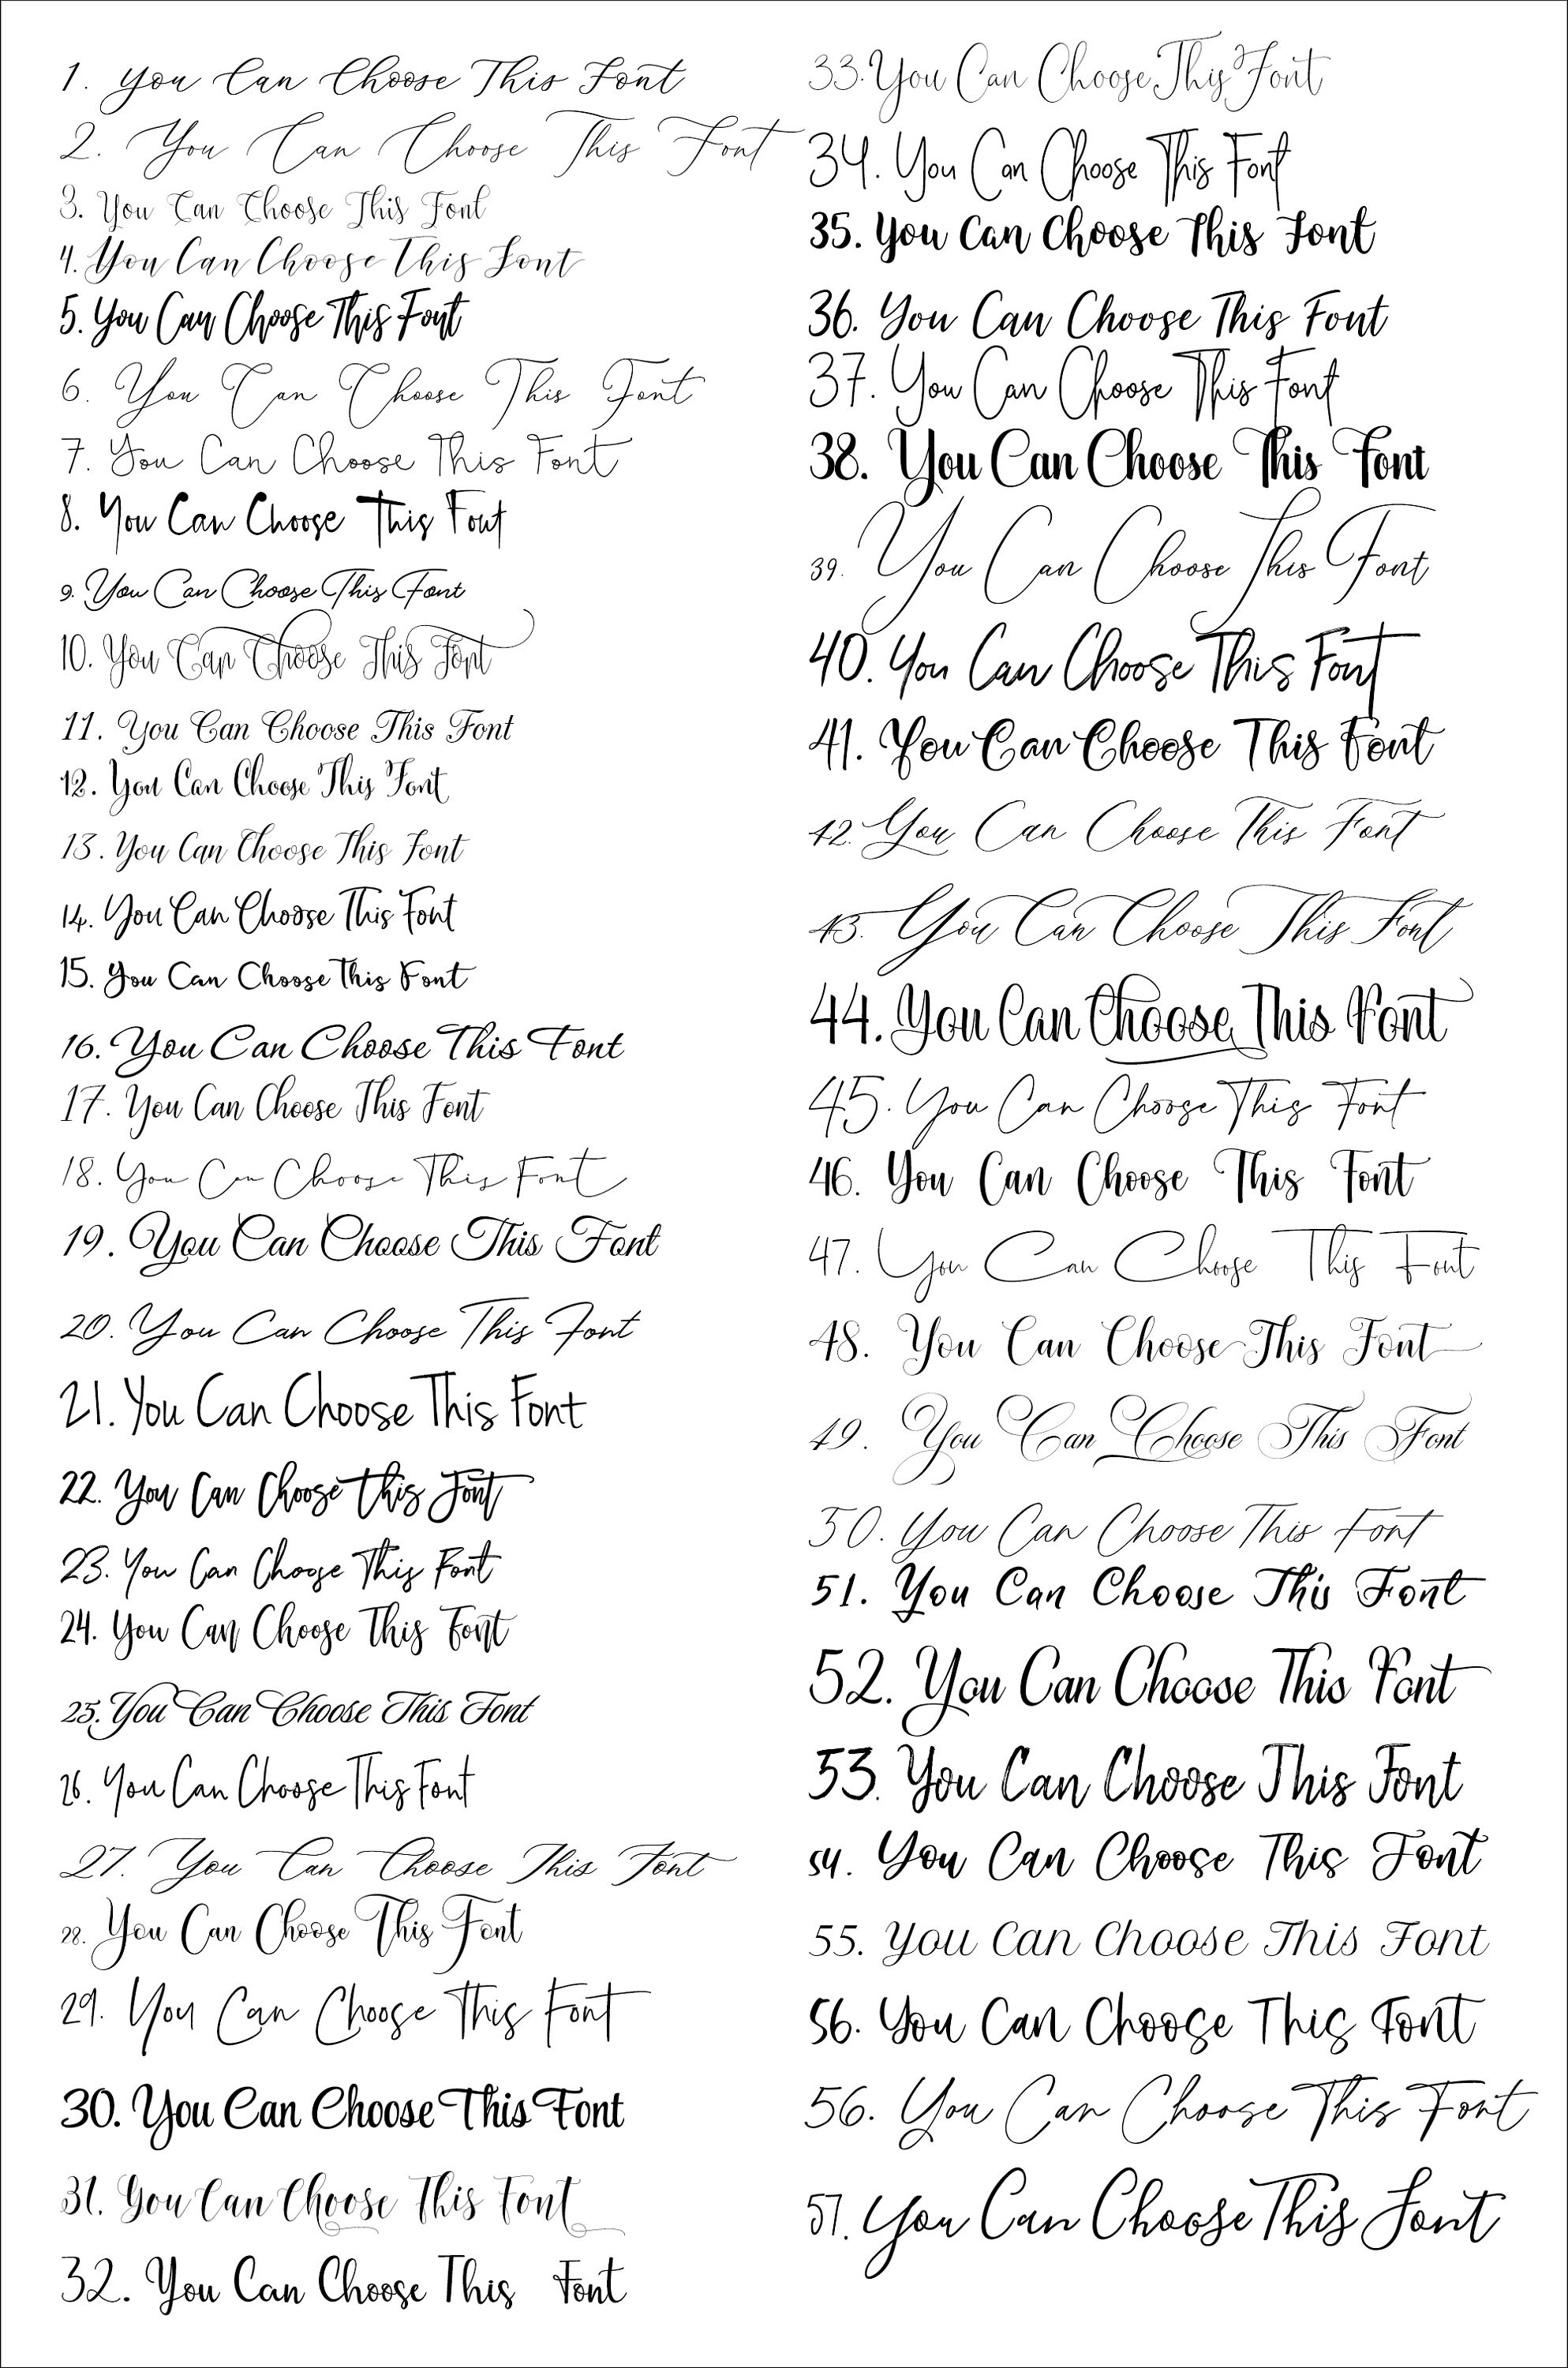 1. You Can Choose This Font
2. You Can Choose This Font
3. You Can Choose This Font
4. You Can Choose This Font
5. You Can Choose This Font
6. You Can Choose This Font
7. You Can Choose This Font
8. You Can Choose This Font
9. You Can Choose This Font
10. You Can Choose This Font
11. You Can Choose This Font
12. You Can Choose This Font
13. You Can Choose This Font
14. You Can Choose This Font
15. You Can Choose This Font
16. You Can Choose This Font
17. You Can Choose This Font
18. You Can Choose This Font
19. You Can Choose This Font
20. You Can Choose This Font
21. You Can Choose This Font
22. You Can Choose This Font
23. You Can Choose This Font
24. You Can Choose This Font
25. You Can Choose This Font
26. You Can Choose This Font
27. You Can Choose This Font
28. You Can Choose This Font
29. You Can Choose This Font
30. You Can Choose This Font
31. You Can Choose This Font
32. You Can Choose This Font
33. You Can Choose This Font
34. You Can Choose This Font
35. You Can Choose This Font
36. You Can Choose This Font
37. You Can Choose This Font
38. You Can Choose This Font
39. You Can Choose This Font
40. You Can Choose This Font
41. You Can Choose This Font
42. You Can Choose This Font
43. You Can Choose This Font
44. You Can Choose This Font
45. You Can Choose This Font
46. You Can Choose This Font
47. You Can Choose This Font
48. You Can Choose This Font
49. You Can Choose This Font
50. You Can Choose This Font
51. You Can Choose This Font
52. You Can Choose This Font
53. You Can Choose This Font
54. You Can Choose This Font
55. You Can Choose This Font
56. You Can Choose This Font
56. You Can Choose This Font
57. You Can Choose This Font